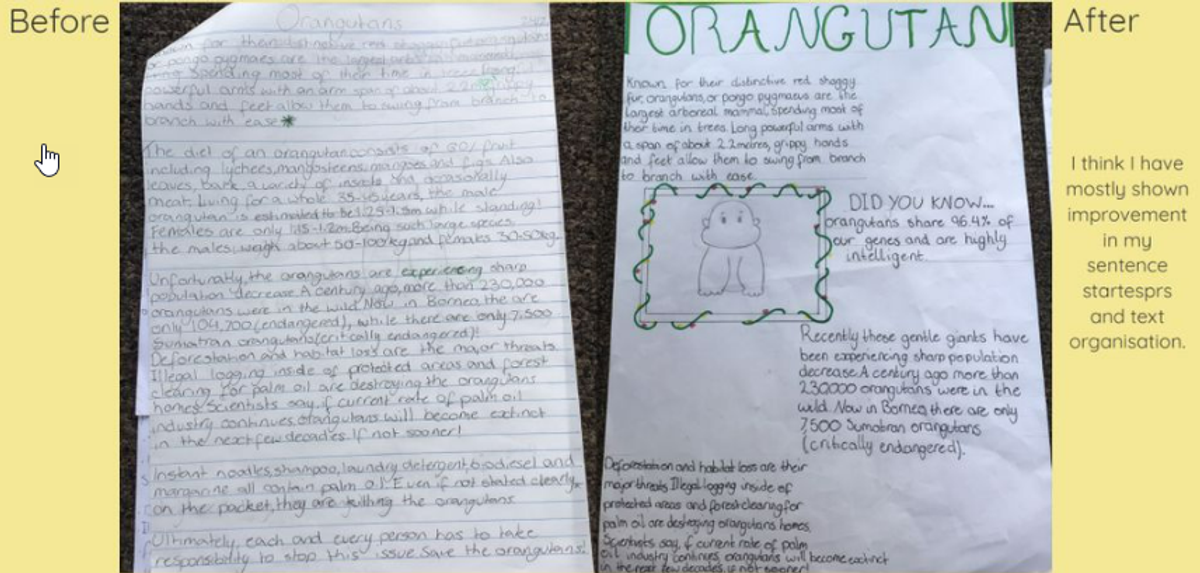 Before
Orangutans
for their distinctive red shaggy fur, orangutans
or pongo pygmaeus are the largest arboreal mammal,
spending most of their time in trees. Long
powerful arms with an arm span of about 2.2m, grippy
hands and feet allow them to swing from branch to
branch with ease*
The diet of an orangutan consists of 60% fruit
including lychees, mangosteens, mangoes and figs. Also
leaves, bark, a variety of insects and occasionally
meat. Living for a whole 35-45 years, the male
orangutan is estimated to be 1.25-1.5m while standing!
Females are only 1.15-1.2m. Being such large species,
the males weigh about 50-100kg and females 30-50kg.
Unfortunatly, the orangutans are experiencing sharp
population decrease. A century ago, more than 230,000
orangutans were in the wild. Now in Borneo, the are
only 104,700 (endangered), while there are only 7,500
Sumatran orangutans (critically endangered)!
Deforestation and habitat loss are the major threats.
Illegal logging inside of protected areas and forest
clearing for palm oil are destroying the orangutans
homes. Scientists say, if current rate of palm oil
industry continues, orangutans will become extinct
in the next few decades. If not sooner!
Instant noodles, shampoo, laundry detergent, biodiesel and
margarine all contain palm oil. Even if not stated clearly
on the packet, they are killing the orangutans.
Ultimately, each and every person has to take
responsibility to stop this issue. Save the orangutans!
ORANGUTAN
Known for their distinctive red shaggy
fur, orangutans, or pongo pygmaeus are the
largest arboreal mammal, spending most of
ther time in trees. Long powerful arms with
a span of about 2.2metres, grippy hands
and feet allow them to swing from branch
to branch with ease.
DID YOU KNOW...
orangutans share 96.4% of
our genes and are highly
intelligent.
Recently these gentle giants have
been experiencing sharp population
decrease. A century ago more than
230000 orangutans were in the
wild. Now in Borneo, there are only
7,500 Sumatran orangutans
(critically endangered).
Deforestation and habitat loss are their
major threats. Illegal logging inside of
protected areas and forest clearing for
palm oil are destroying orangutans homes.
Scientists say, if current rate of palm
oil industry continues, orangutans will become extinct
in the next few decades, if not sooner!
After
I think I have
mostly shown
improvement
in my
sentence
startesprs
and text
organisation.